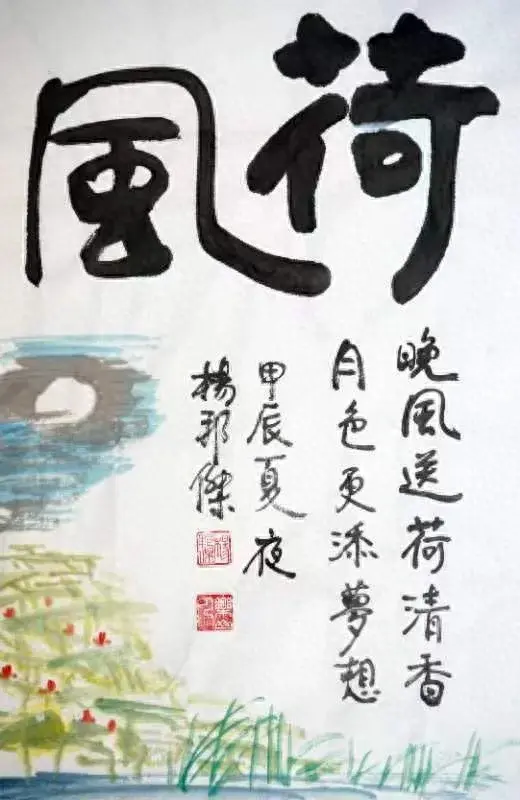 荷風
晚風送荷清香
月色更添夢想
甲辰夏夜
楊邦傑